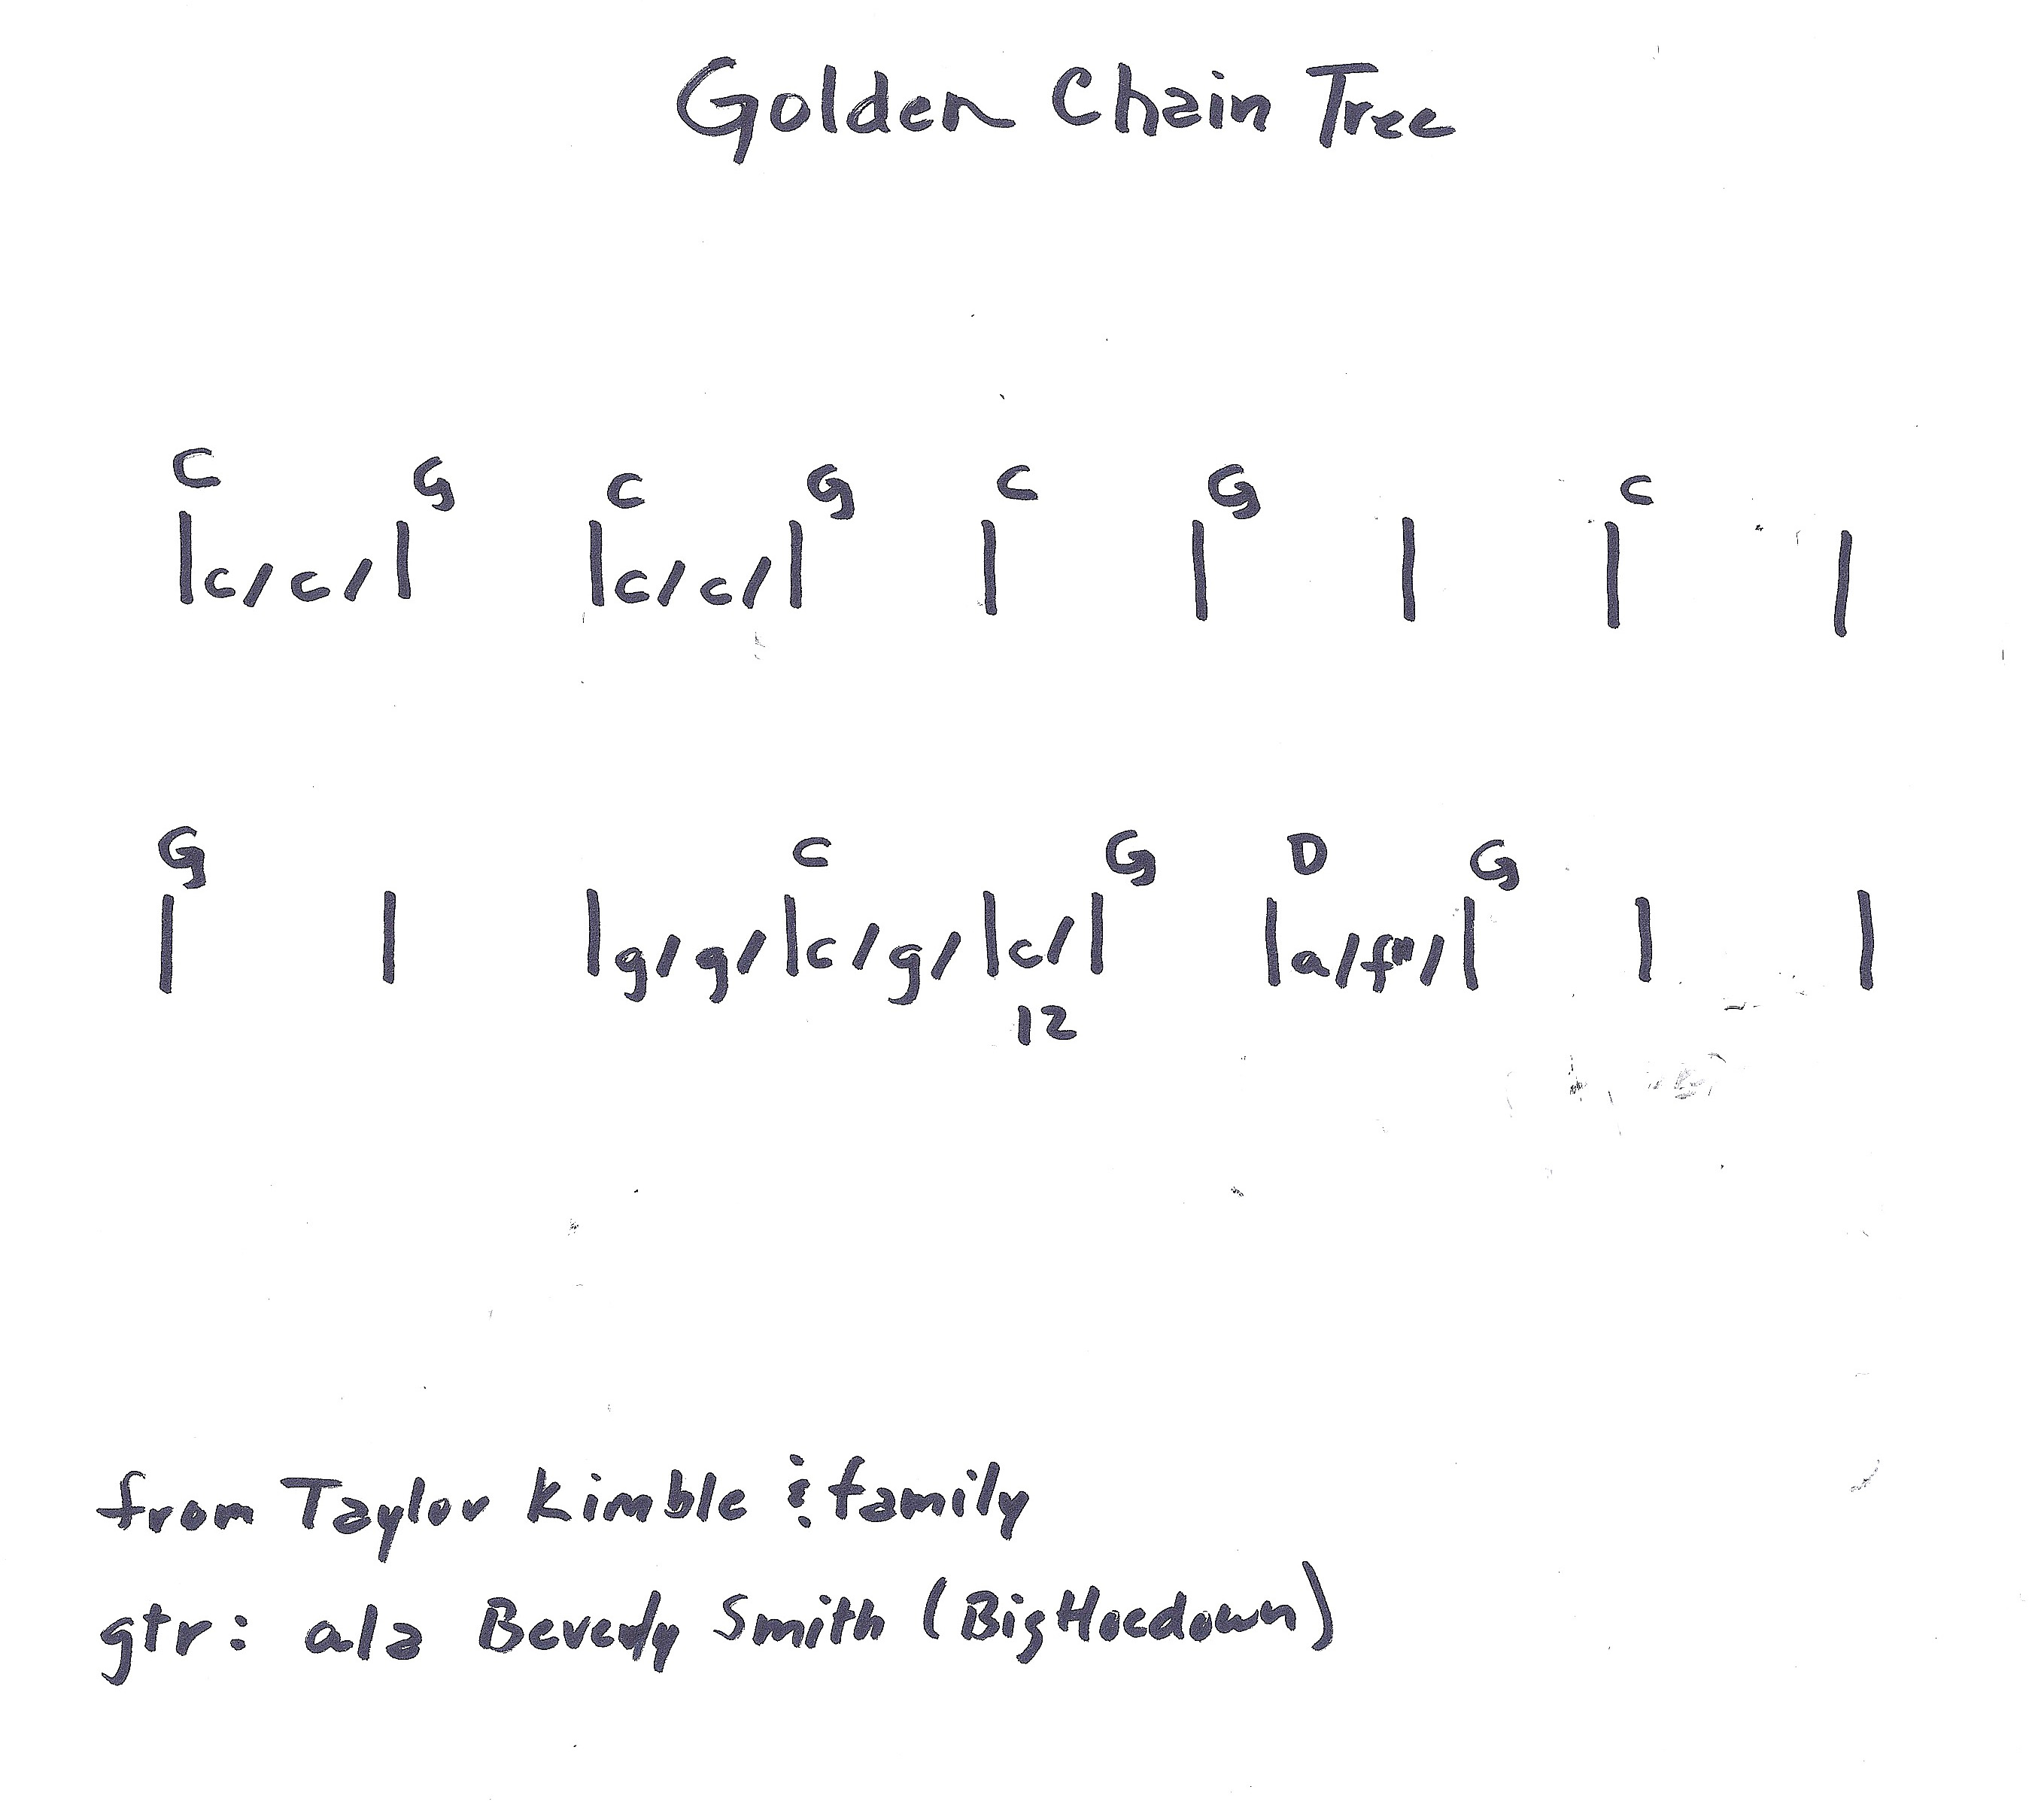 Golden Chain Tree
C G C G C G C
|c/c/| |c/c/| | | | | |
G C G D G
| | |g/g/|c/g/|c/| |a/f#/| | |
12
from Taylor Kimble & family
gtr: ala Beverly Smith (Big Hoedown)